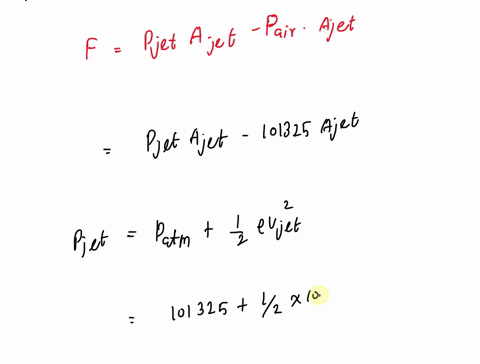 F = Pjet Ajet - Pair · Ajet
= Pjet Ajet - 101325 Ajet
Pjet = Patm + 1/2 ρ vjet²
= 101325 + 1/2 × 10